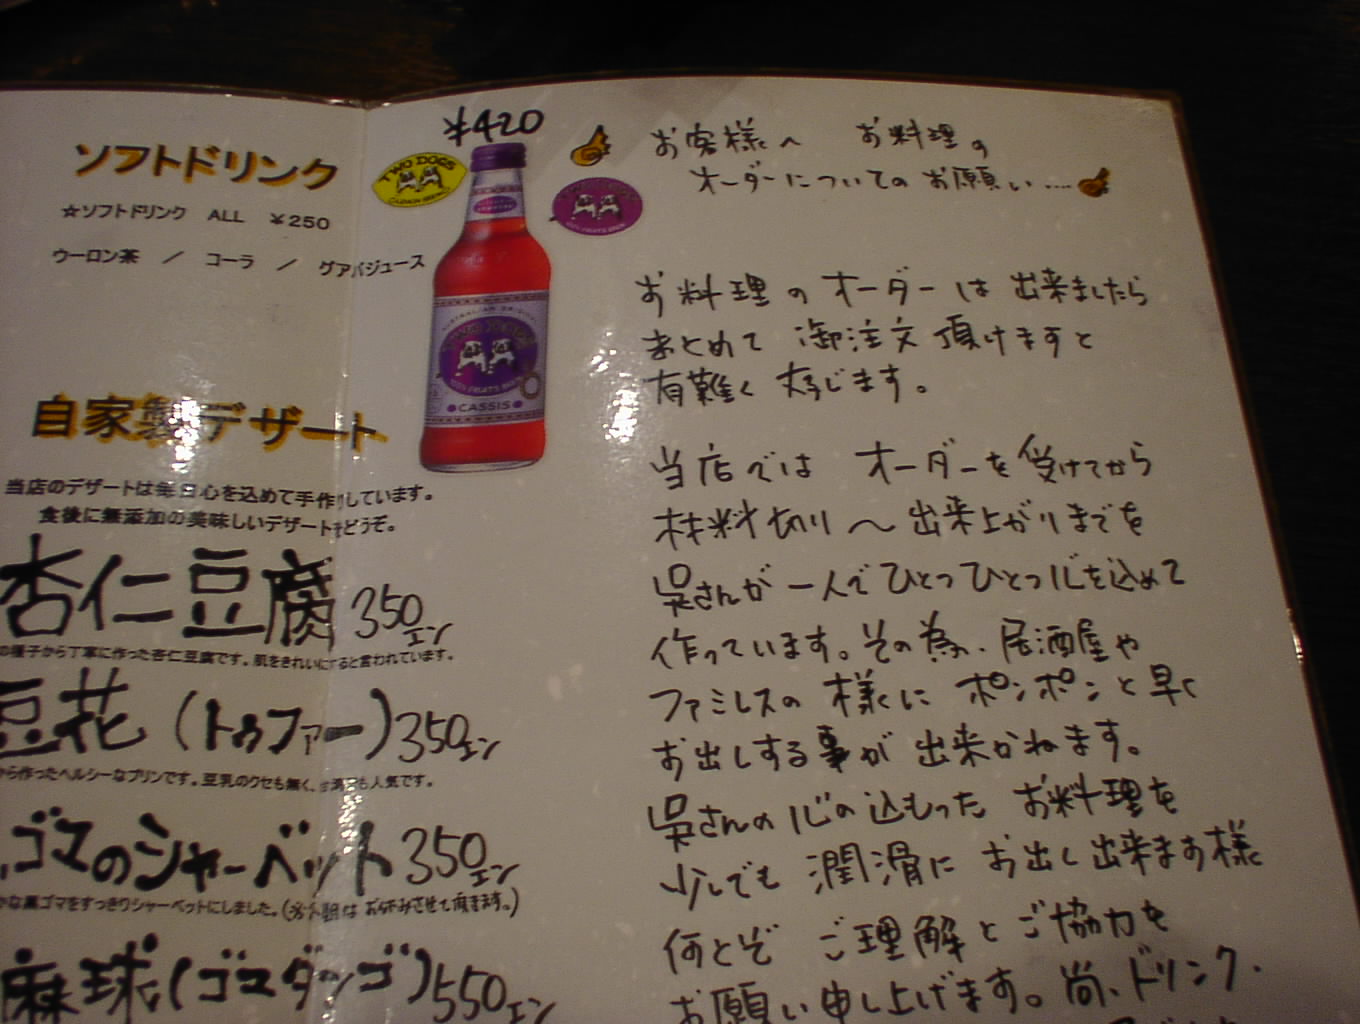 ソフトドリンク
☆ソフトドリンク ALL ¥250
ウーロン茶 / コーラ / グァバジュース
¥420
TWO DOGS
CASSIS
自家製デザート
当店のデザートは毎日心を込めて手作りしています。
食後に無添加の美味しいデザートをどうぞ。
杏仁豆腐 350エン
の種子から丁寧に作った杏仁豆腐です。肌をきれいにすると言われています。
豆花(トゥファー)350エン
から作ったヘルシーなプリンです。豆乳のクセも無く、
人気です。
ゴマのシャーベット 350エン
な黒ゴマをすっきりシャーベットにしました。
麻球(ゴマダンゴ)550エン
お客様へ お料理の
オーダーについてのお願い…
お料理のオーダーは出来ましたら
まとめて御注文頂けますと
有難く存じます。
当店では オーダーを受けてから
材料切り〜出来上がりまでを
呉さんが一人でひとつひとつ心を込めて
作っています。その為、居酒屋や
ファミレスの様にポンポンと早く
お出しする事が出来かねます。
呉さんの心の込もったお料理を
少しでも潤滑にお出し出来ます様
何とぞ ご理解とご協力を
お願い申し上げます。尚、ドリンク・